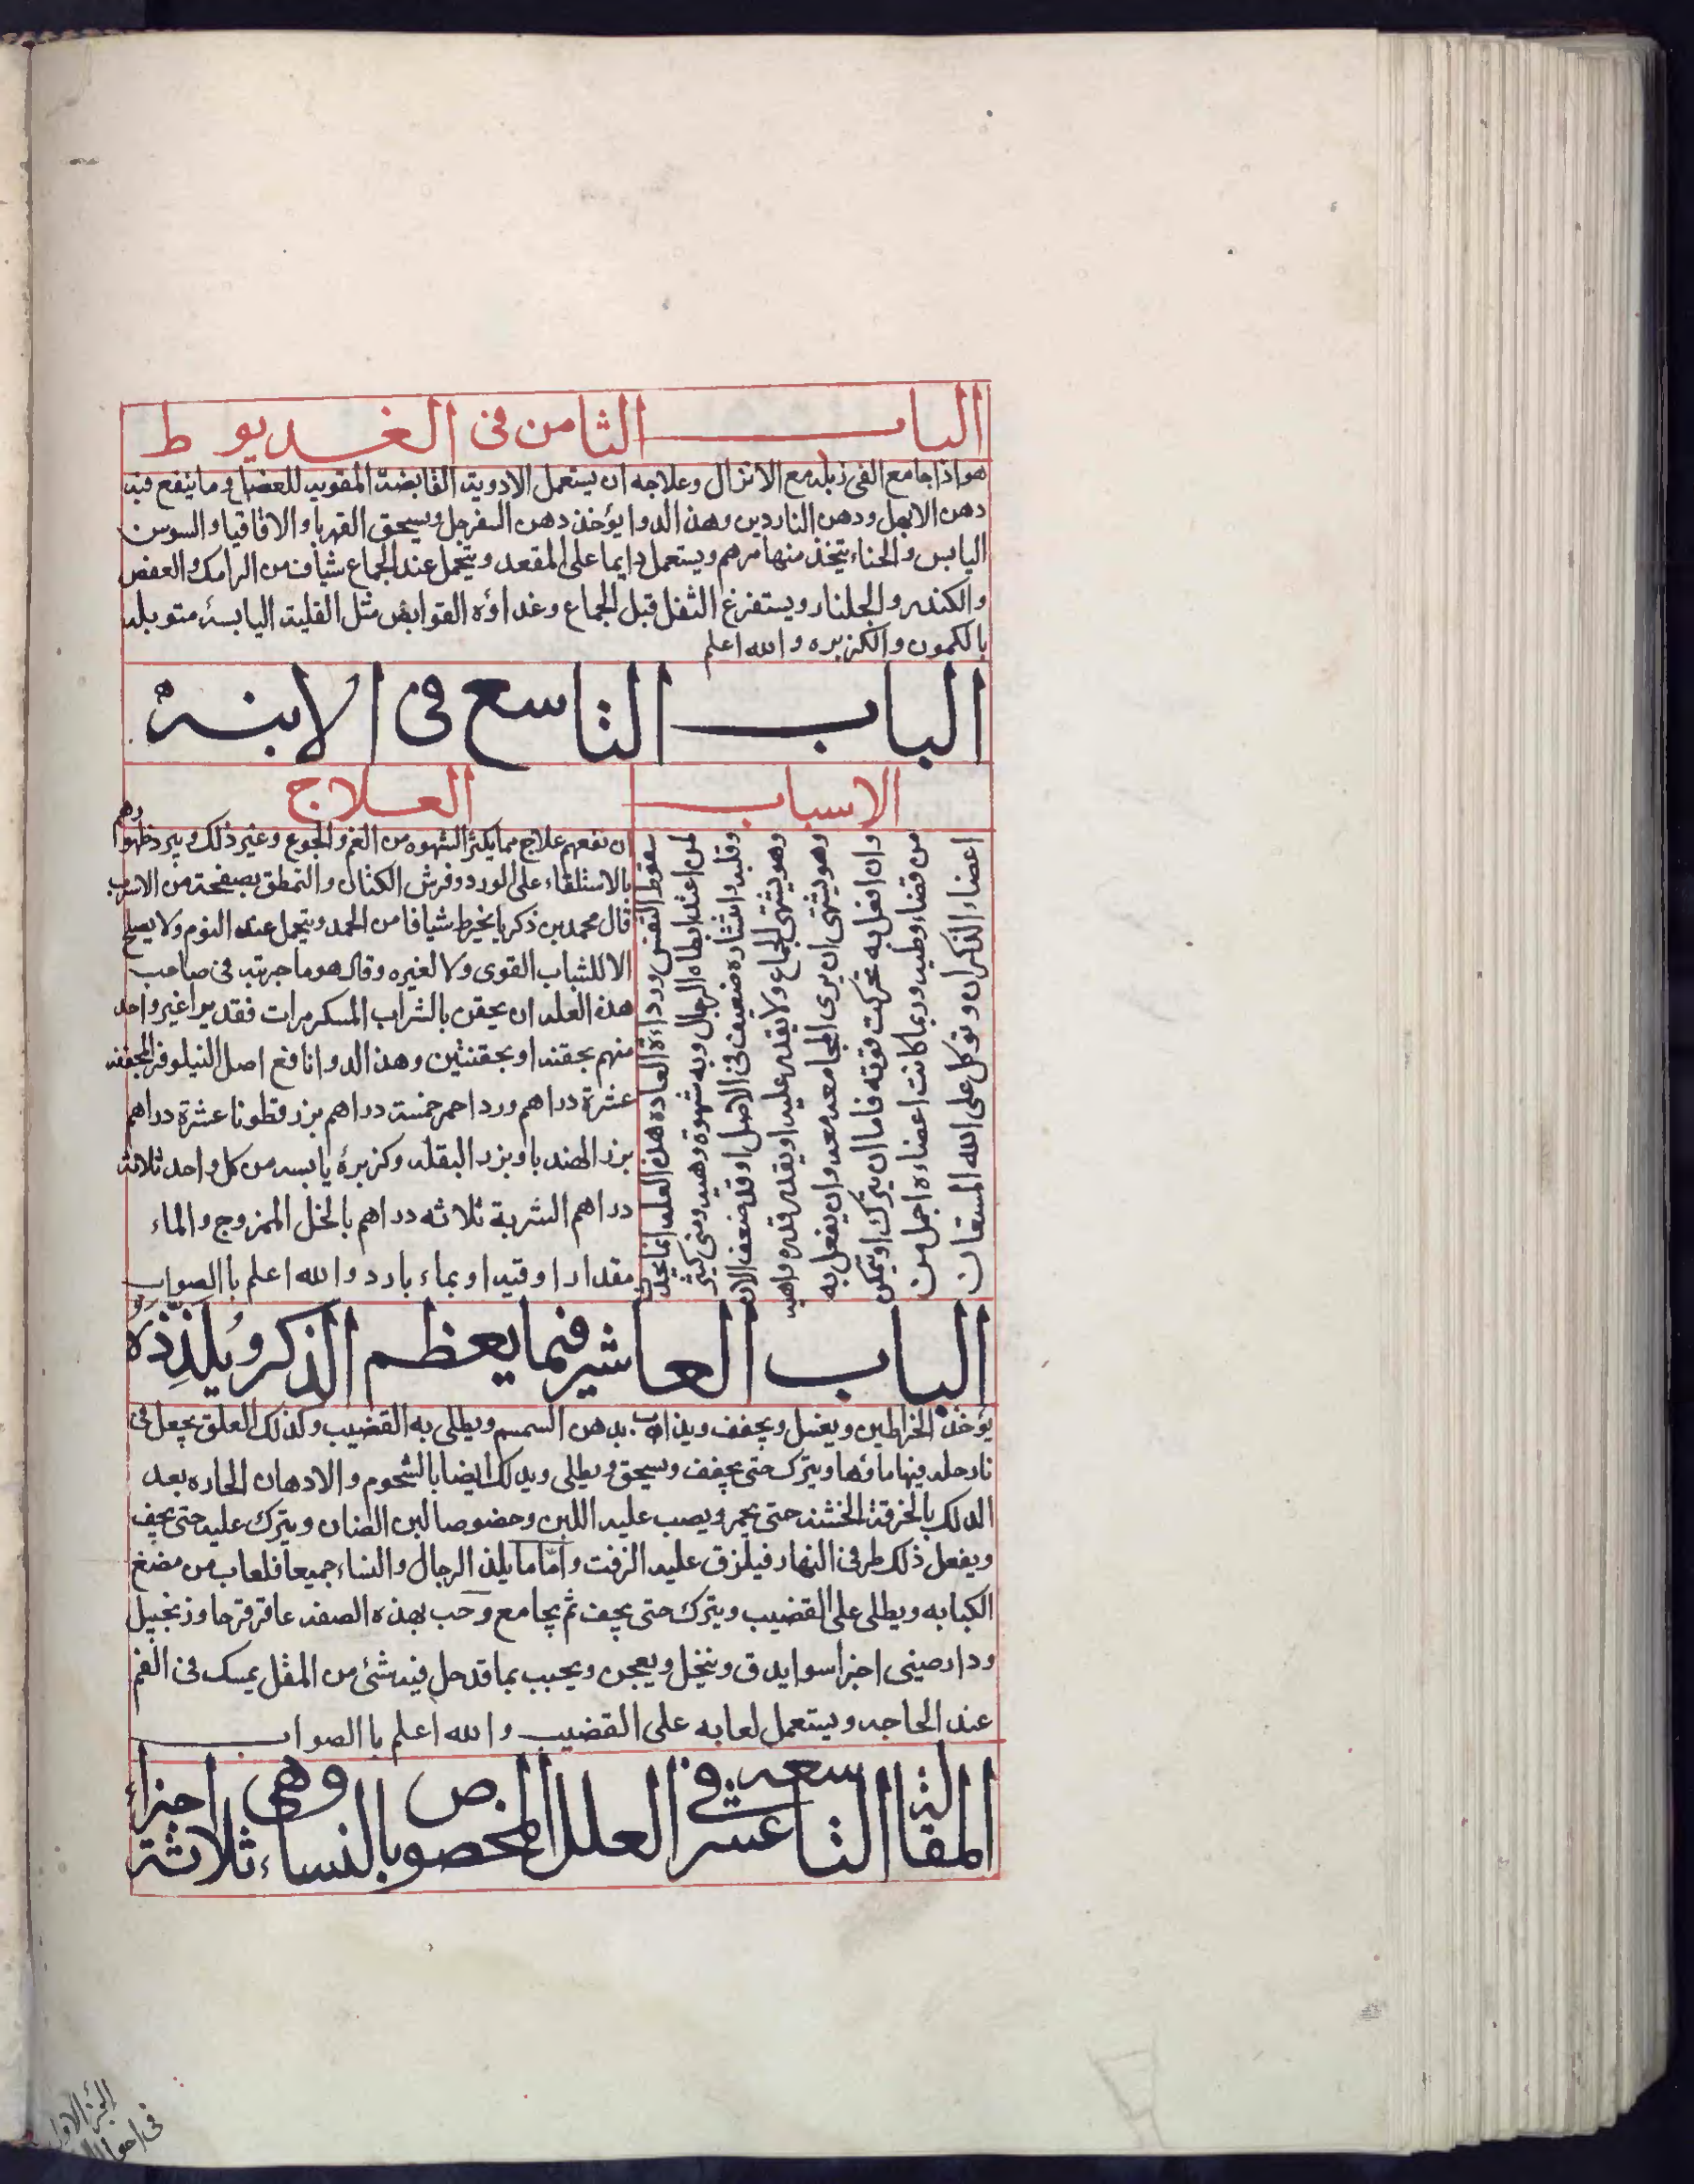 الباب الثامن في الغديوط
هو اذا جامع القى زبله مع الانزال وعلاجه ان يستعمل الادوية القابضة المقوية للعضل وما ينفع فيه
دهن الابهل ودهن الناردين وهذا الدوا يؤخذ دهن السفرجل ويسحق القهربا والاقاقيا والسوسن
اليابس والحناء يتخذ منها مرهم ويستعمل دايما على المقعد ويتحمل عند الجماع شياف من الرامك والعفص
والكندر والجلنار ويستفرغ الثفل قبل الجماع وغداؤه القوابض مثل القلية اليابسة متوبله
بالكمون والكزبره والله اعلم
الباب التاسع في الابنة
الاسباب
سقوط النفس ورداءة العاده هذه العله انما تحدث
لمن اعتد ابطاه الرجال وبه شهوة وهيه ومنى كثير
وقلبه وانتشاره ضعيف في الاصل او قد ضعف الان
وهو يشتهى الجماع ولا يقدر عليه او يقدر قدره واهيه
وهو يشتهى ان يرى المجامعه معه وان يفعل به
وان افعل به تحركت قوته فاما ان يترك او يتمكن
من قضاء وطيه وربما كانت اعضاءه اجمل من
اعضاء الذكران وتوكل على الله المستعان
العلاج
ان نفعهم علاج مما يكثر الشهوه من الغم والجوع وغير ذلك ويبرد ظهورهم
بالاستلقاء على الورد وفرش الكتان والتمطق بصفيحة من الاسرب
قال محمد بن ذكريا يخرط شيافا من الجمد ويتحمل عند النوم ولا يصلح
الا للشباب القوى ولا لغيره وقال هو ما جربته في صاحب
هذه العله ان يحقن بالشراب المسكر مرات فقد برا غير واحد
منهم بحقنه او بحقنتين وهذا الدوا نافع اصل النيلوفر المجففه
عشرة دراهم ورد احمر خمسة دراهم بزر قطونا عشرة دراهم
بزر الهندبا وبزر البقله وكزبرة يابسه من كل واحد ثلاثة
دراهم الشربة ثلاثه دراهم بالخل الممزوج والماء
مقدار اوقيه او بماء بارد والله اعلم باالصواب
الباب العاشر فيما يعظم الذكر ويلذذه
يؤخذ الخراطين ويغسل ويجفف ويذاب بدهن السمسم ويطلى به القضيب وكذلك العلق يجعل في
نارجله فيها ماؤها ويترك حتى يجفف ويسحق ويطلى ويدلك ايضا بالشحوم والادهان الحاره بعد
الدلك بالخرقة الخشنه حتى يحمر ويصب عليه اللبن وخصوصا لبن الضان ويترك عليه حتى يجف
ويفعل ذلك طرفى النهار فيلزق عليه الزفت واما ما يلذ الرجال والنساء جميعا فلعاب من مضغ
الكبابه ويطلى على القضيب ويترك حتى يجف ثم يجامع وحب بهذه الصفه عاقرقرحا وزنجبيل
ودارصينى اجزا سوا يدق وينخل ويعجن ويحبب بما قد حل فيه شئ من المقل يمسك في الفم
عند الحاجه ويستعمل لعابه على القضيب والله اعلم باالصواب
المقالة التاسعه عشر في العلل المخصوص بالنساء وهي اجزاء ثلاثة
الجزء الاول